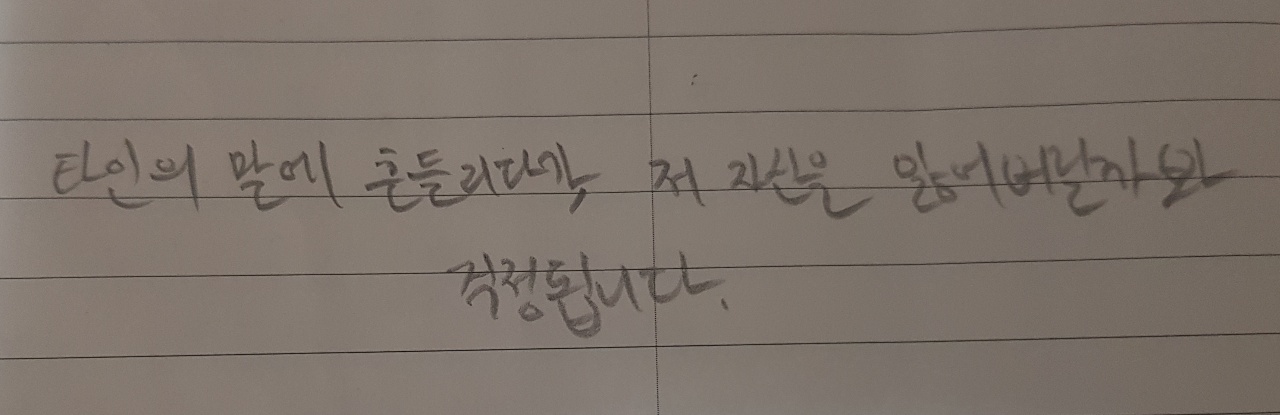 타인의 말에 흔들리다가, 저 자신을 잃어버릴까 봐
걱정됩니다.